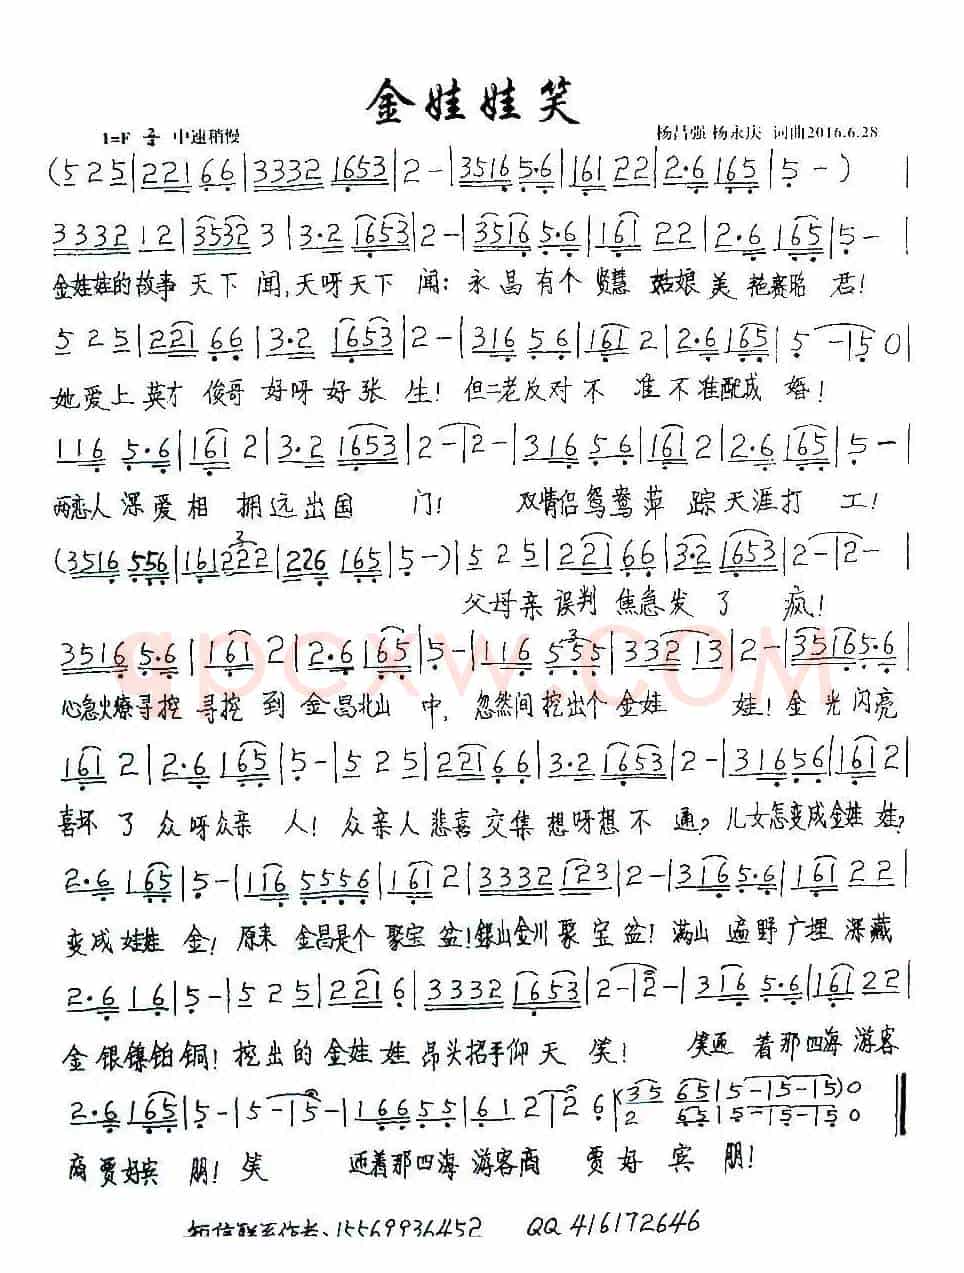 金娃娃笑
1=F 2/4 中速稍慢 杨昌强 杨永庆 词曲2016.6.28
(5 2 5|221 66|3332 1653|2-|3516 5·6|161 22|2·6 165|5-) |
3332 12|3532 3|3·2 1653|2-|3516 5·6|161 22|2·6 165|5- |
金娃娃的故事天下闻,天呀天下闻:永昌有个贤慧姑娘美艳赛昭君!
5 2 5|221 66|3·2 1653|2-|316 56|161 2|2·6 165|5-|5 0|
她爱上英才俊哥好呀好张生!但二老反对不准不准配成婚!
116 5·6|161 2|3·2 1653|2-|2-|316 56|161 2|2·6 165|5-|
两恋人深爱相拥远出国门!双情侣鸳鸯萍踪天涯打工!
(3516 556|161 222|226 165|5-)|5 2 5|221 66|3·2 1653|2-|2-|
父母亲误判焦急发了疯!
3516 5·6|161 2|2·6 165|5-|116 555|332 13|2-|3516 5·6|
心急火燎寻挖寻挖到金昌北山中,忽然间挖出个金娃娃!金光闪亮
161 2|2·6 165|5-|5 2 5|221 66|3·2 1653|2-|316 56|161 2|
喜坏了众呀众亲人!众亲人悲喜交集想呀想不通?儿女怎变成金娃娃?
2·6 165|5-|116 5556|161 2|3332 123|2-|316 5·6|161 22|
变成娃娃金!原来金昌是个聚宝盆!银山金川聚宝盆!满山遍野广埋深藏
2·6 16|5-|5 2 5|221 6|3332 1653|2-|2-|316 5·6|161 22|
金银镍铂铜!挖出的金娃娃昂头招手仰天笑!笑迎着那四海游客
2·6 165|5-|5-|5-|1665 5|61 2|2 6|35 65|5-|5-|5)0
2 65|5-|5-|5 0
商贾好宾朋!笑迎着那四海游客商贾好宾朋!
短信联系作者:15569936452 QQ 416172646
apcxw.COM